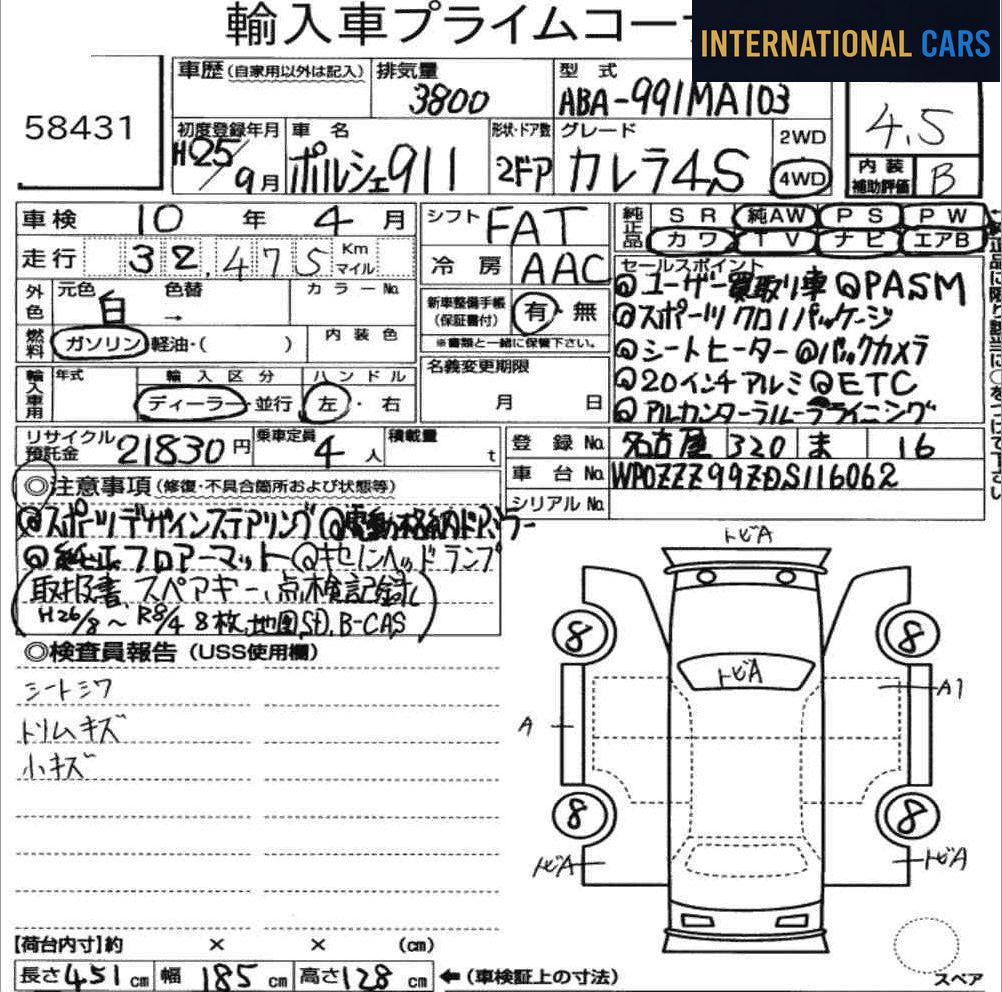 輸入車プライムコー
INTERNATIONAL CARS
58431
車歴(自家用以外は記入) 排気量 型式
3800 ABA-991MA103 4.5
初度登録年月 車名 形状・ドア数 グレード 2WD
H25/9月 ポルシェ911 2ドア カレラ4S 4WD
内装補助評価 B
車検 10年4月 シフト FAT 純正品 SR 純AW PS PW
カワ TV ナビ エアB
走行 32,475 Km マイル 冷房 AAC
セールスポイント
外色 元色 白 → 色替 カラーNo.
新車整備手帳(保証書付) 有・無
※書類と一緒に保管下さい。
◎ユーザー買取り車 ◎PASM
◎スポーツクロノパッケージ
◎シートヒーター ◎バックカメラ
◎20インチアルミ ◎ETC
◎アルカンターラルーフライニング
燃料 ガソリン・軽油・( ) 内装色
輸入車用 年式 輸入区分 ハンドル 名義変更期限
ディーラー・並行 左・右 月 日
リサイクル預託金 21830円 乗車定員 4人 積載量 t
登録No. 名古屋 320 ま 16
車台No. WP0ZZZ99ZDS116062
シリアルNo.
◎注意事項(修復・不具合箇所および状態等)
◎スポーツデザインステアリング ◎電動格納ドアミラー
◎純正フロアーマット ◎キセノンヘッドランプ
(取扱書、スペアキー、点検記録
H26/8~R8/4 8枚、地図SD、B-CAS)
◎検査員報告(USS使用欄)
シートシワ
トリムキズ
小キズ
トビA
8 8
トビA
A1
A
8 8
トビA トビA
スペア
【荷台内寸】約 × × (cm)
長さ451cm 幅185cm 高さ128cm ←(車検証上の寸法)